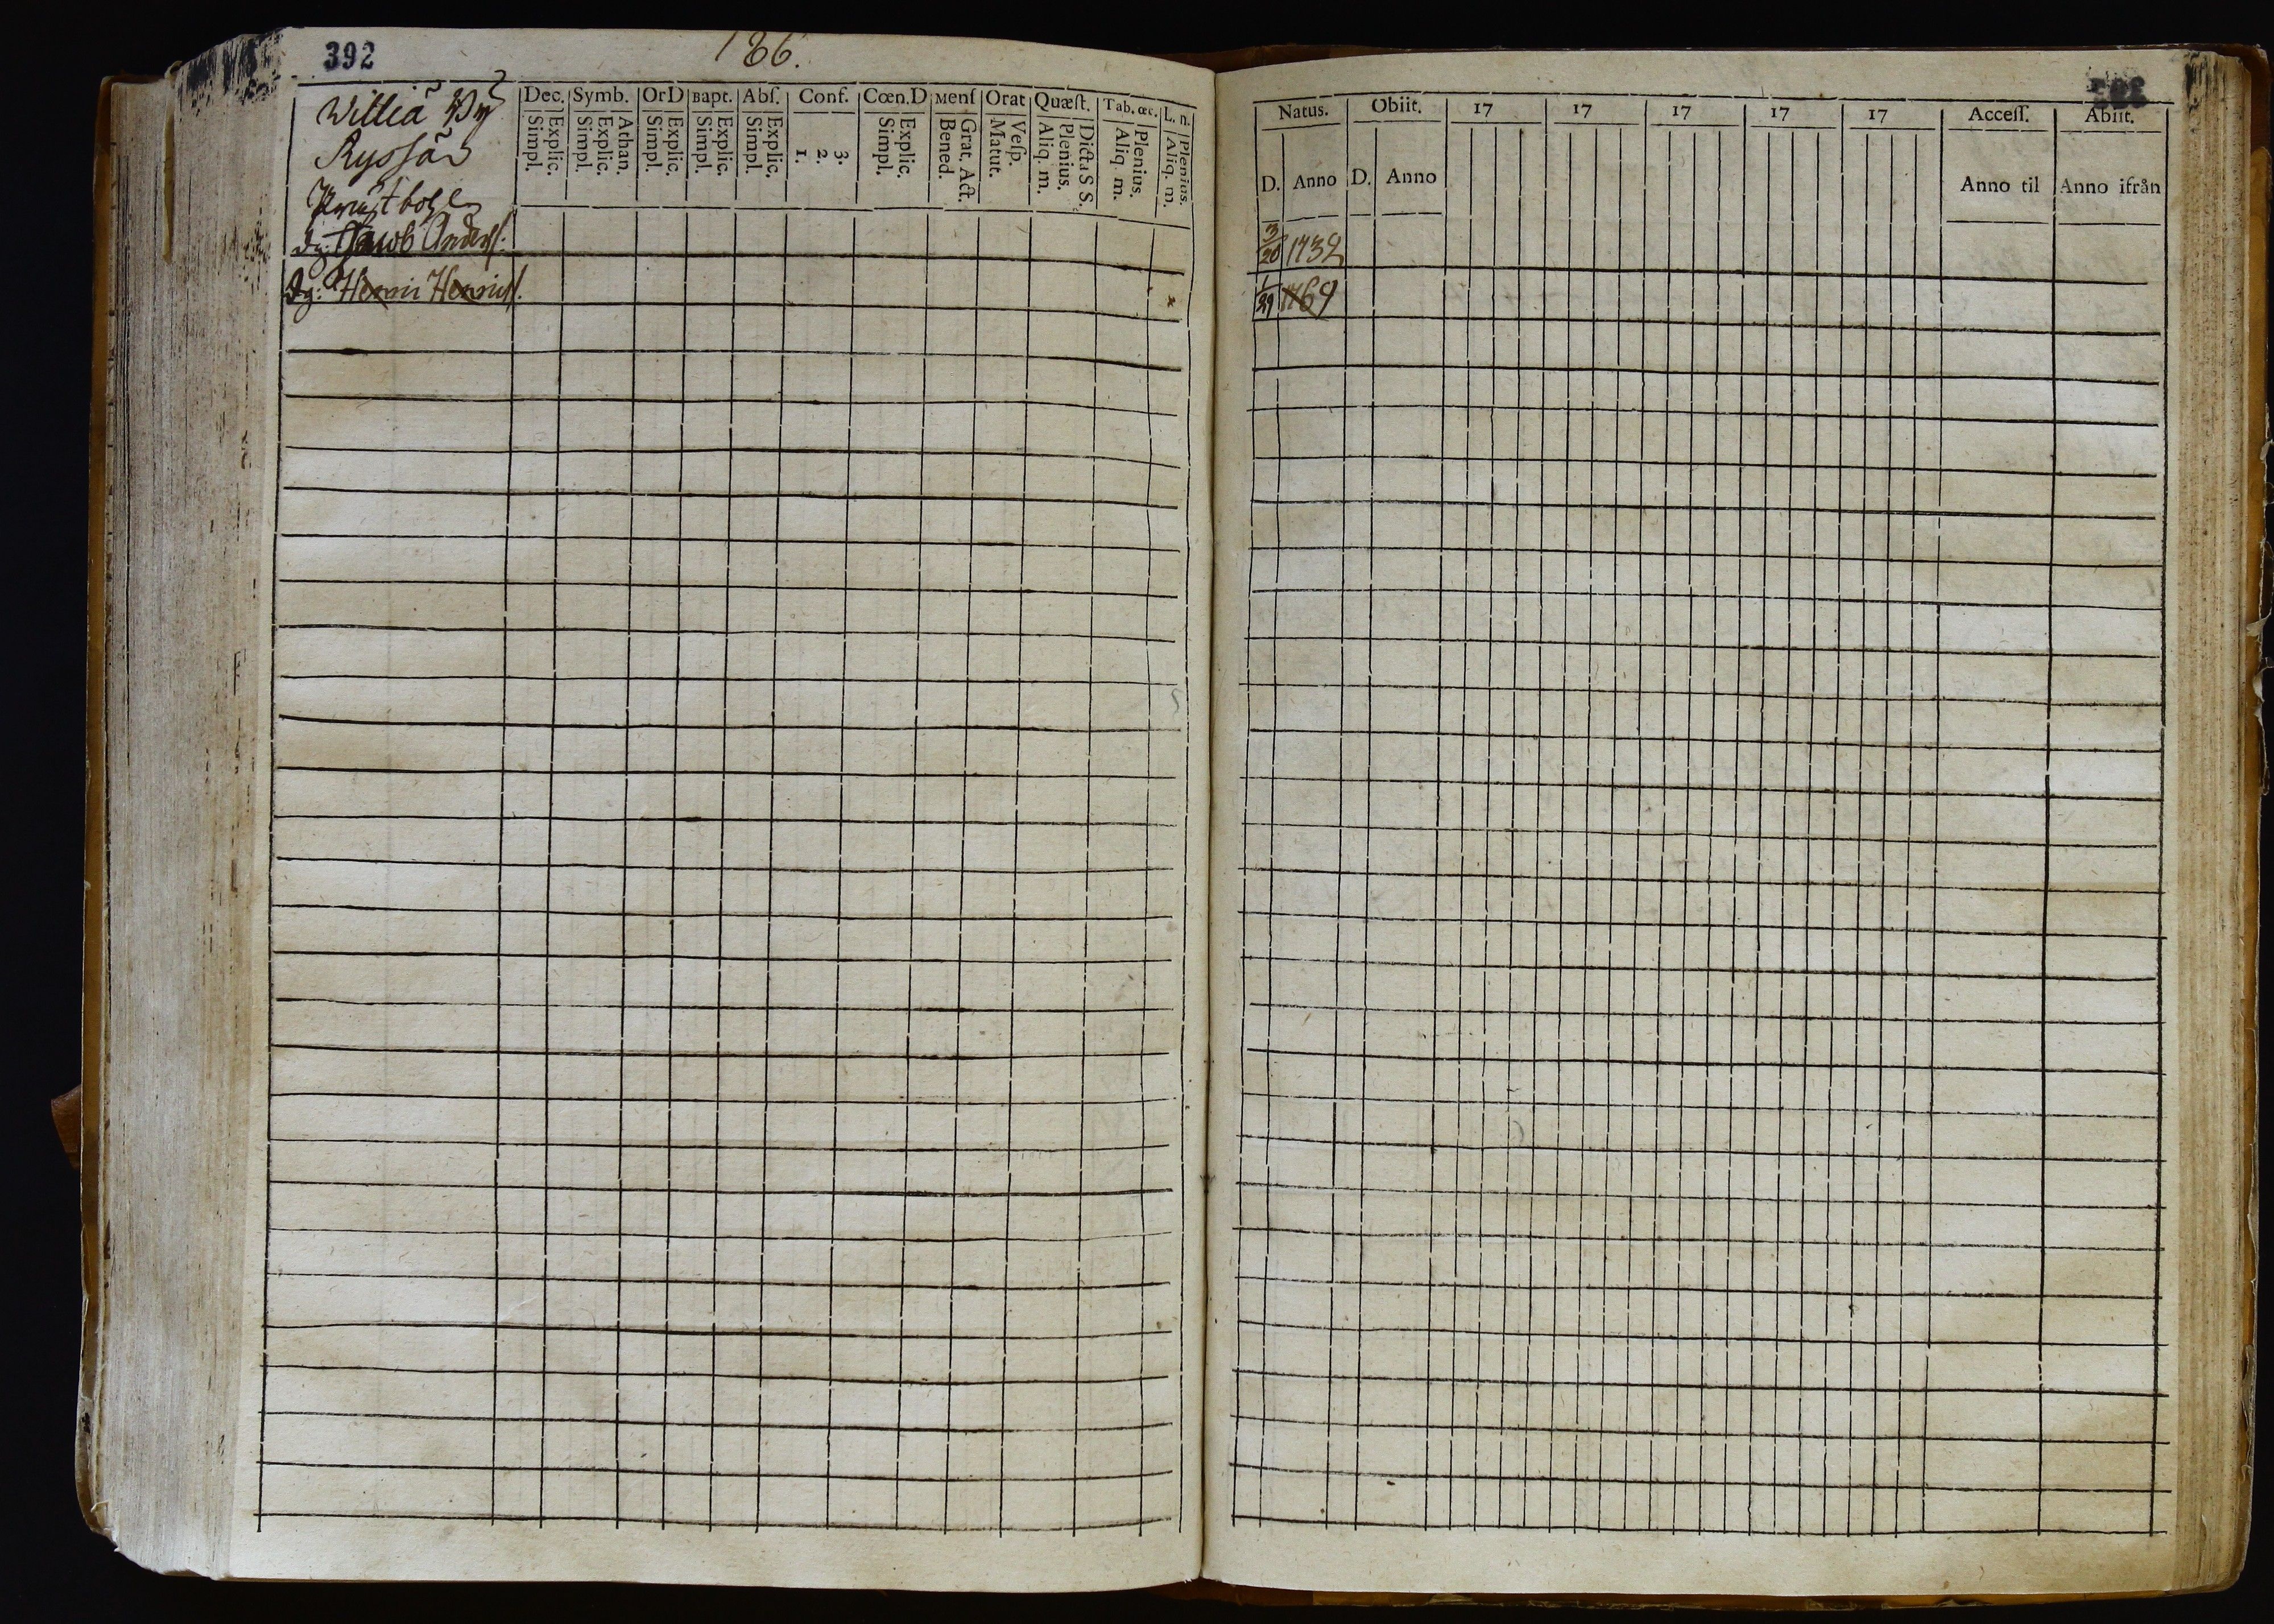 392
186.
Willia By
Ryssä
Dec. Symb. OrD Bapt. Abſ. Conf. Cœn.D Menſ Orat Quæſt. Tab. œc. L. n.
Simpl. Explic. Simpl. Explic. Athan. Simpl. Explic. Simpl. Explic. Simpl. Explic. 1. 2. 3. Simpl. Explic. Bened. Grat. Act. Matut. Veſp. Aliq. m. Plenius. Dicta S S. Aliq. m. Plenius. Aliq. m. Plenius.
Dg: Jacob Anderſ.
Dg: Henric Henricſ. x
Natus. Obiit. 17 17 17 17 17 Acceſſ. Abiit.
D. Anno D. Anno Anno til Anno ifrån
3/20 1732
1/29 1769